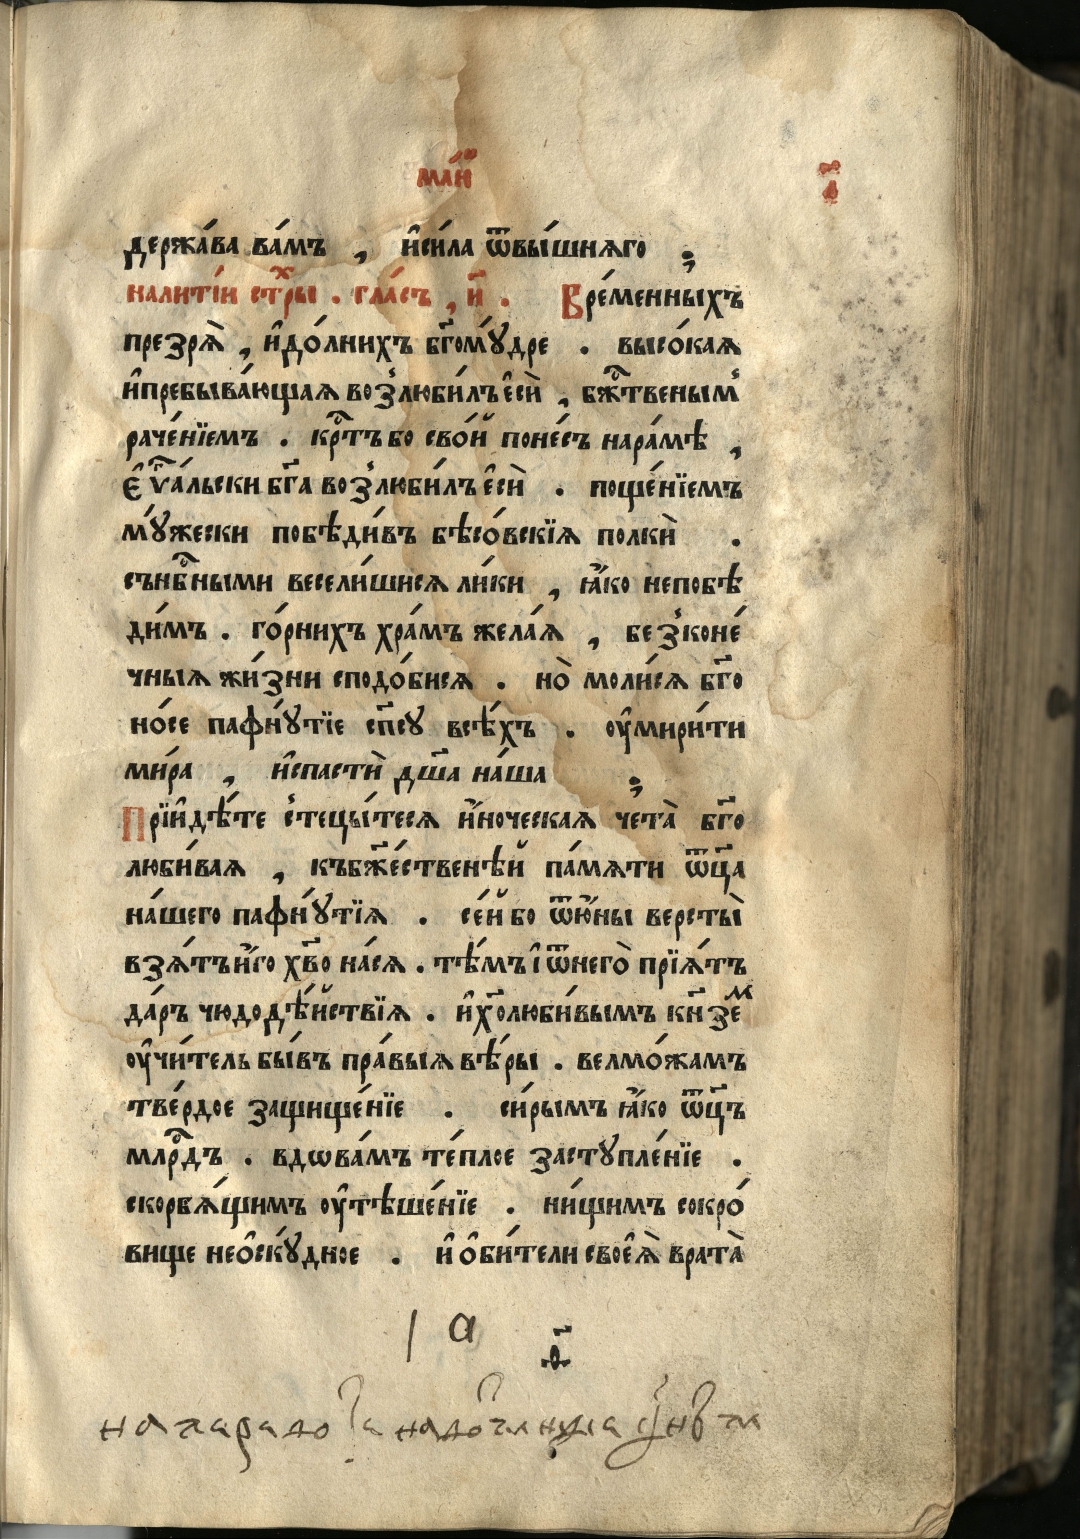 ма́й
держа́ва ва́мъ , и҆си́ла ѿвы́шнѧго ;
налитїи стⷯры . гла́съ , и҃ . Вре́менныхъ
презрѧ̀ , и҆до́лнихъ бг҃ому́дре . высо́каѧ
и҆пребыва́ющаѧ возлюби́лъ є҆сѝ , бжⷭ҇твеным
раче́нїемъ . крⷭ҇тъ бо сво́й поне́съ нара́мѣ ,
є҆ѵⷢ҇а́льски бг҃а возлюби́лъ є҆сѝ . поще́нїемъ
му́жески побѣди́въ бѣсо́вскїѧ полкѝ .
сънбⷭ҇ными весели́шисѧ ли́ки , ꙗ҆́ко непобѣ
ди́мъ . го́рнихъ хра́мъ жела́ѧ , безконе́
чныѧ жи́зни сподо́бисѧ . но̀ моли́сѧ бг҃о
но́се пафну́тїе сп҃су всѣ́хъ . ᲂу҆мири́ти
ми́ра , и҆спастѝ дш҃а на́ша ;
Прїи҆дѣ́те стецы́тесѧ и҆́ноческаѧ чета̀ бг҃о
люби́ваѧ , къбж҃е́ственѣй па́мѧти ѿц҃а
на́шего пафну́тїѧ . се́й бо ѿю҆́ны версты̀
взѧ́тъ и҆́го хв҃о на́сѧ . тѣ́мъ і҆ ѿнего̀ прїѧ́тъ
да́ръ чюдодѣ́йствїѧ . и҆хⷭ҇олюби́вымъ кн҃зеⷨ
ᲂу҆чи́тель бы́въ пра́выѧ вѣ́ры . велмо́жамъ
тве́рдое защище́нїе . си́рымъ ꙗ҆́ко ѿц҃ъ
млрⷭ҇дъ . вдѡва́мъ те́плое заступле́нїе .
скорбѧ́щимъ ᲂу҆тѣше́нїе . ни́щимъ сокро́
вище нео҆ску́дное . и҆ о҆би́тели своеѧ̀ врата̀
а